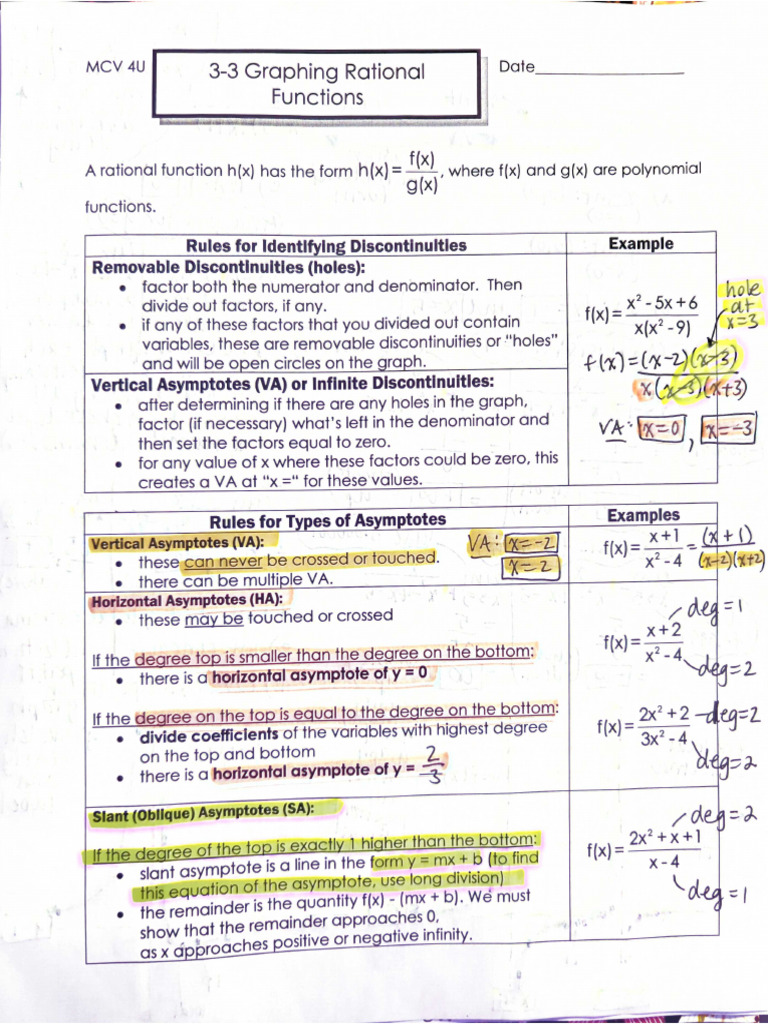 MCV 4U
3-3 Graphing Rational
Functions
Date_______________
A rational function h(x) has the form h(x) = f(x)/g(x), where f(x) and g(x) are polynomial
functions.
Rules for Identifying Discontinuities
Example
Removable Discontinuities (holes):
• factor both the numerator and denominator. Then
divide out factors, if any.
• if any of these factors that you divided out contain
variables, these are removable discontinuities or "holes"
and will be open circles on the graph.
f(x) = (x² - 5x + 6)/(x(x² - 9))
hole
at
x=3
f(x) = (x-2)(x-3)/(x(x-3)(x+3))
Vertical Asymptotes (VA) or Infinite Discontinuities:
• after determining if there are any holes in the graph,
factor (if necessary) what's left in the denominator and
then set the factors equal to zero.
• for any value of x where these factors could be zero, this
creates a VA at "x =" for these values.
VA: x=0, x=-3
Rules for Types of Asymptotes
Examples
Vertical Asymptotes (VA):
• these can never be crossed or touched.
• there can be multiple VA.
VA: x=-2
x=2
f(x) = (x+1)/(x² - 4) = (x+1)/((x-2)(x+2))
Horizontal Asymptotes (HA):
• these may be touched or crossed
If the degree top is smaller than the degree on the bottom:
• there is a horizontal asymptote of y = 0
f(x) = (x+2)/(x² - 4)
deg=1
deg=2
If the degree on the top is equal to the degree on the bottom:
• divide coefficients of the variables with highest degree
on the top and bottom
• there is a horizontal asymptote of y = 2/3
f(x) = (2x² + 2)/(3x² - 4)
deg=2
deg=2
Slant (Oblique) Asymptotes (SA):
If the degree of the top is exactly 1 higher than the bottom:
• slant asymptote is a line in the form y = mx + b (to find
this equation of the asymptote, use long division)
• the remainder is the quantity f(x) - (mx + b). We must
show that the remainder approaches 0,
as x approaches positive or negative infinity.
f(x) = (2x² + x + 1)/(x - 4)
deg=2
deg=1